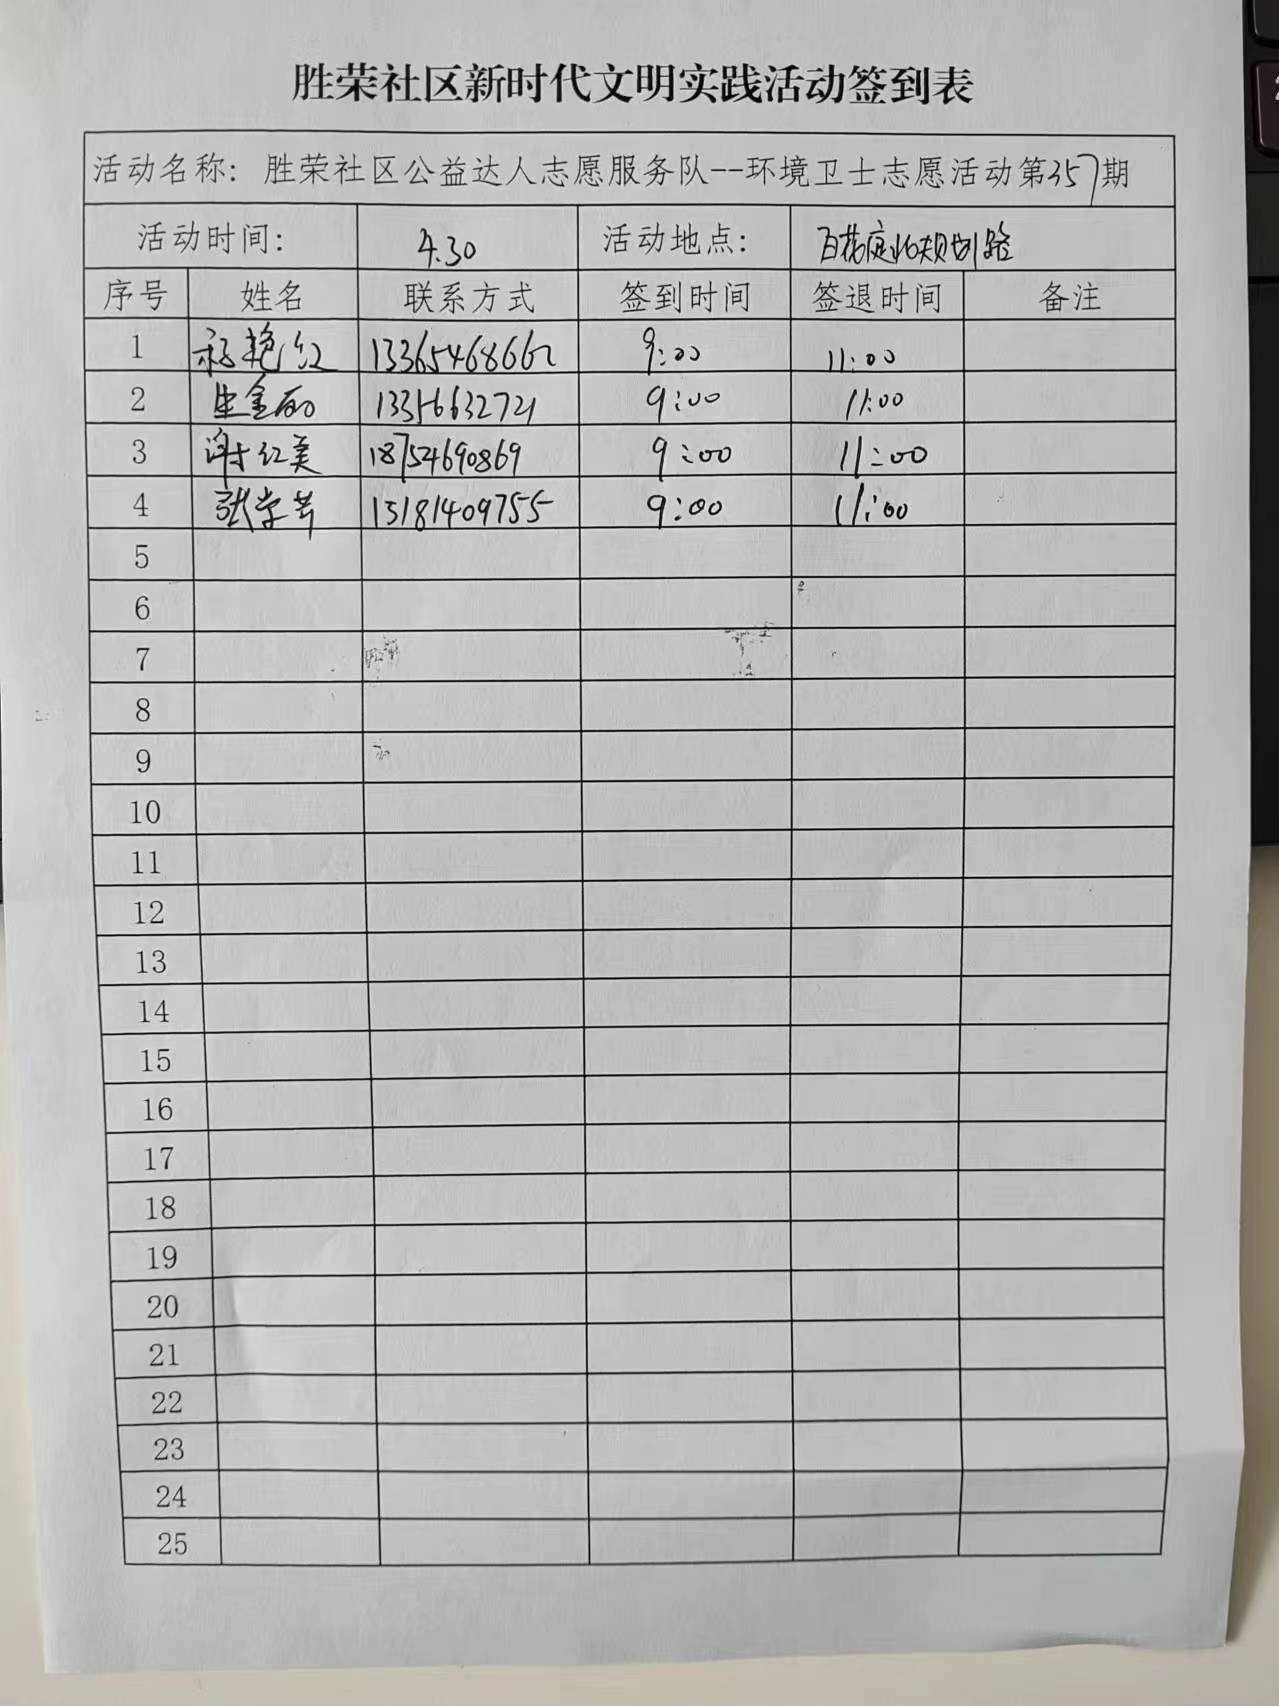 胜荣社区新时代文明实践活动签到表
活动名称：胜荣社区公益达人志愿服务队--环境卫士志愿活动第357期
活动时间： 4.30 活动地点： 百花庭北规划路
序号 姓名 联系方式 签到时间 签退时间 备注
1 艳红 13365468662 9:00 11:00
2 生金丽 9:00 11:00
3 谢红美 18754690869 9:00 11:00
4 张学芹 13181409755 9:00 11:00
5
6
7
8
9
10
11
12
13
14
15
16
17
18
19
20
21
22
23
24
25